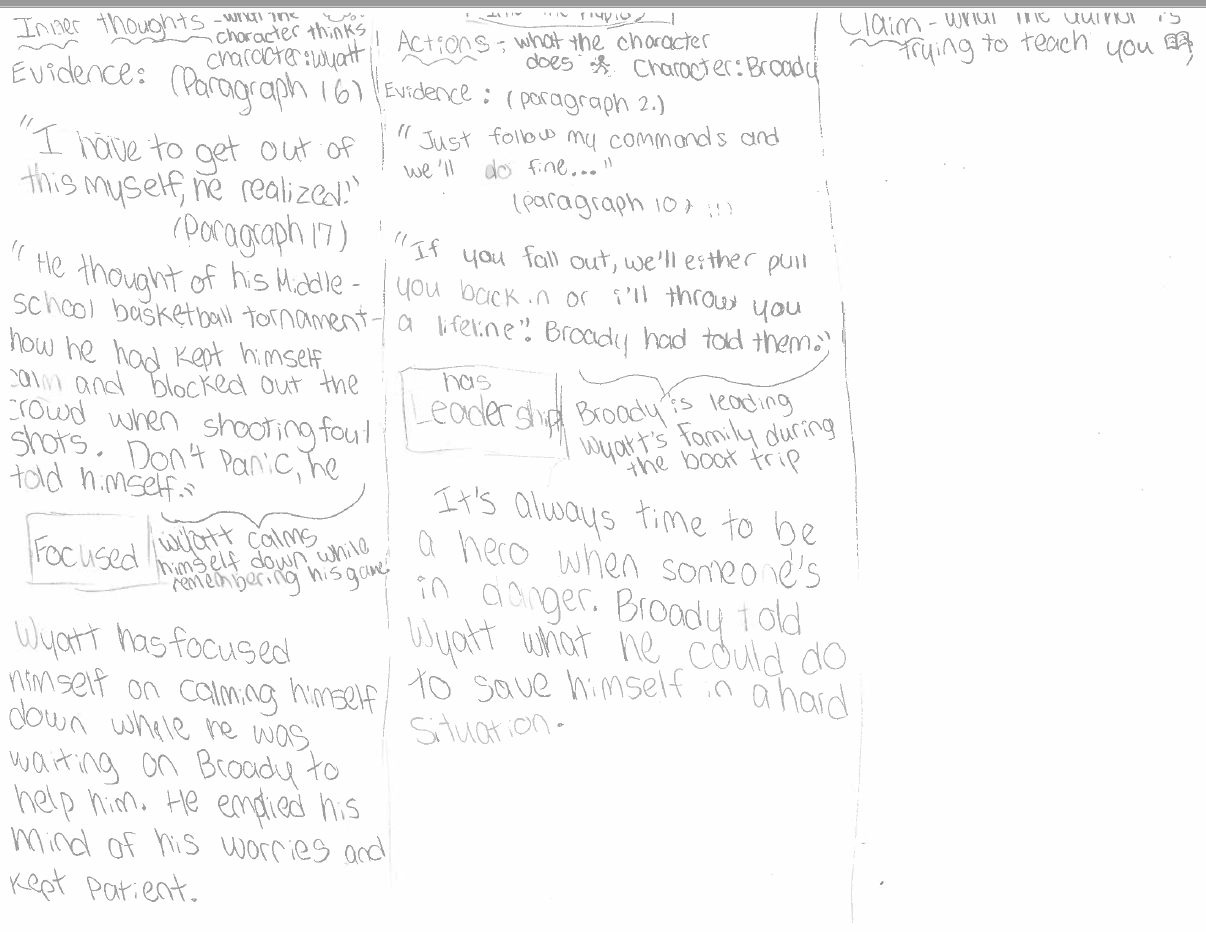 Inner thoughts - what the
character thinks
character: Wyatt
Evidence: (Paragraph 16)
"I have to get out of
this myself, he realized."
(Paragraph 17)
"He thought of his Middle-
school basketball tornament-
how he had kept himself
calm and blocked out the
crowd when shooting foul
shots. Don't Panic, he
told himself."
Focused
Wyatt calms
himself down while
remembering his game
Wyatt has focused
himself on calming himself
down while he was
waiting on Broady to
help him. He emptied his
mind of his worries and
kept Patient.
Actions - what the character
does Character: Broady
Evidence: (paragraph 2.)
"Just follow my commands and
we'll do fine..."
(paragraph 10, 11)
"If you fall out, we'll either pull
you back in or i'll throw you
a lifeline". Broady had told them."
has
Leadership
Broady is leading
Wyatt's Family during
the boat trip
It's always time to be
a hero when someone's
in danger. Broady told
Wyatt what he could do
to save himself in a hard
situation.
Claim - what the author is
trying to teach you